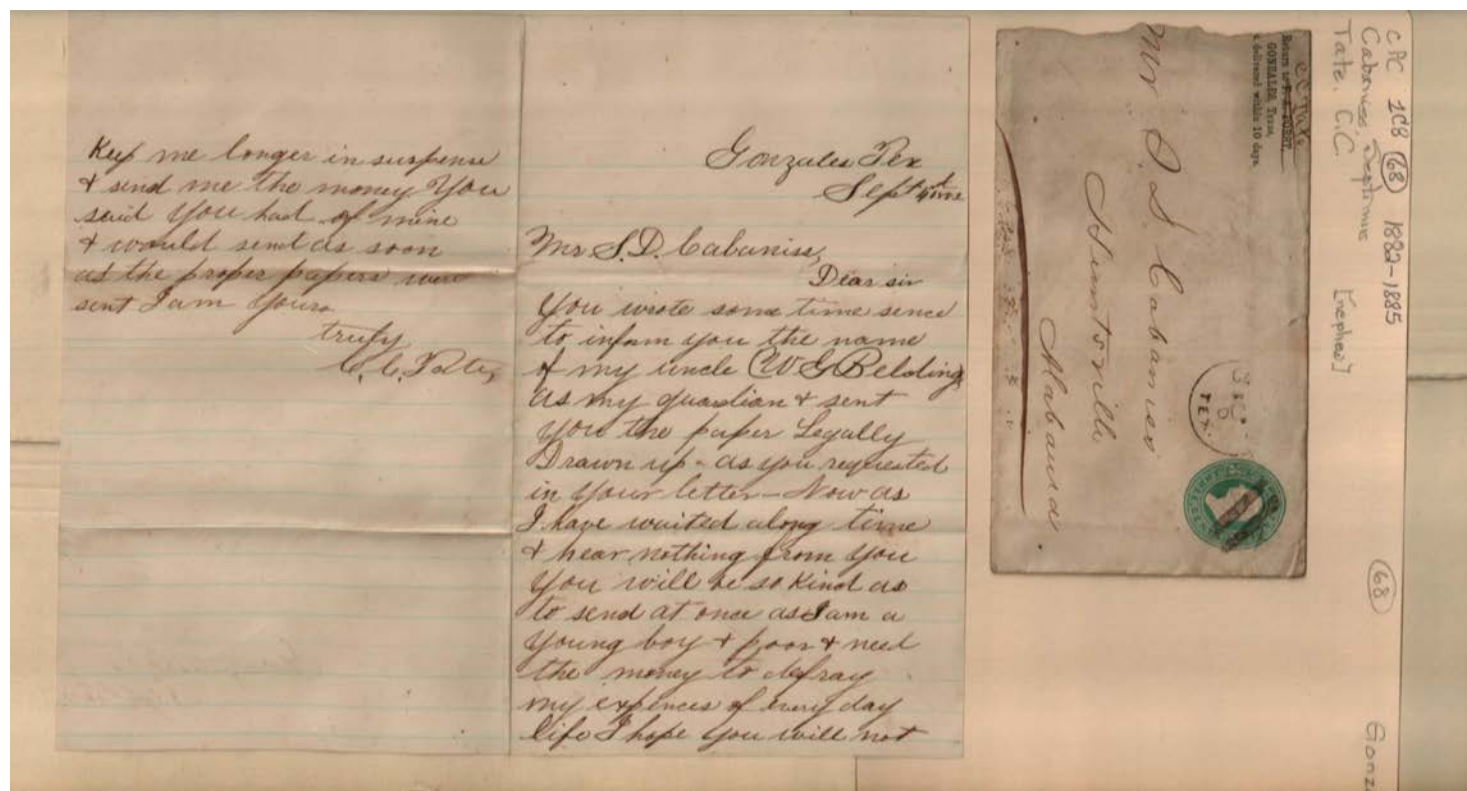 Gonzales Tex
Sept
Mr S. D. Cabaniss,
Dear sir
You wrote some time sence
to inform you the name
of my uncle (W G Belding)
as my guardian & sent
you the paper Legally
Drawn up - as you requested
in your letter - Now as
I have waited along time
& hear nothing from you
you will be so kind as
to send at once as I am a
young boy & poor & need
the money to defray
my expences of every day
life I hope you will not
Keep me longer in suspense
& send me the money You
said you had of mine
& would send as soon
as the proper papers were
sent I am yours
truly
C. C.
C C Tate
Return to
GONZALES, Texas,
delivered within 10 days.
Mr S. D. Cabaniss
Huntsville
Alabama.
TEX.
CPC 2C8 (68) 1882-1885
Cabaniss, Septimus
Tate, C.C. [nephew]
(68)
Gonz